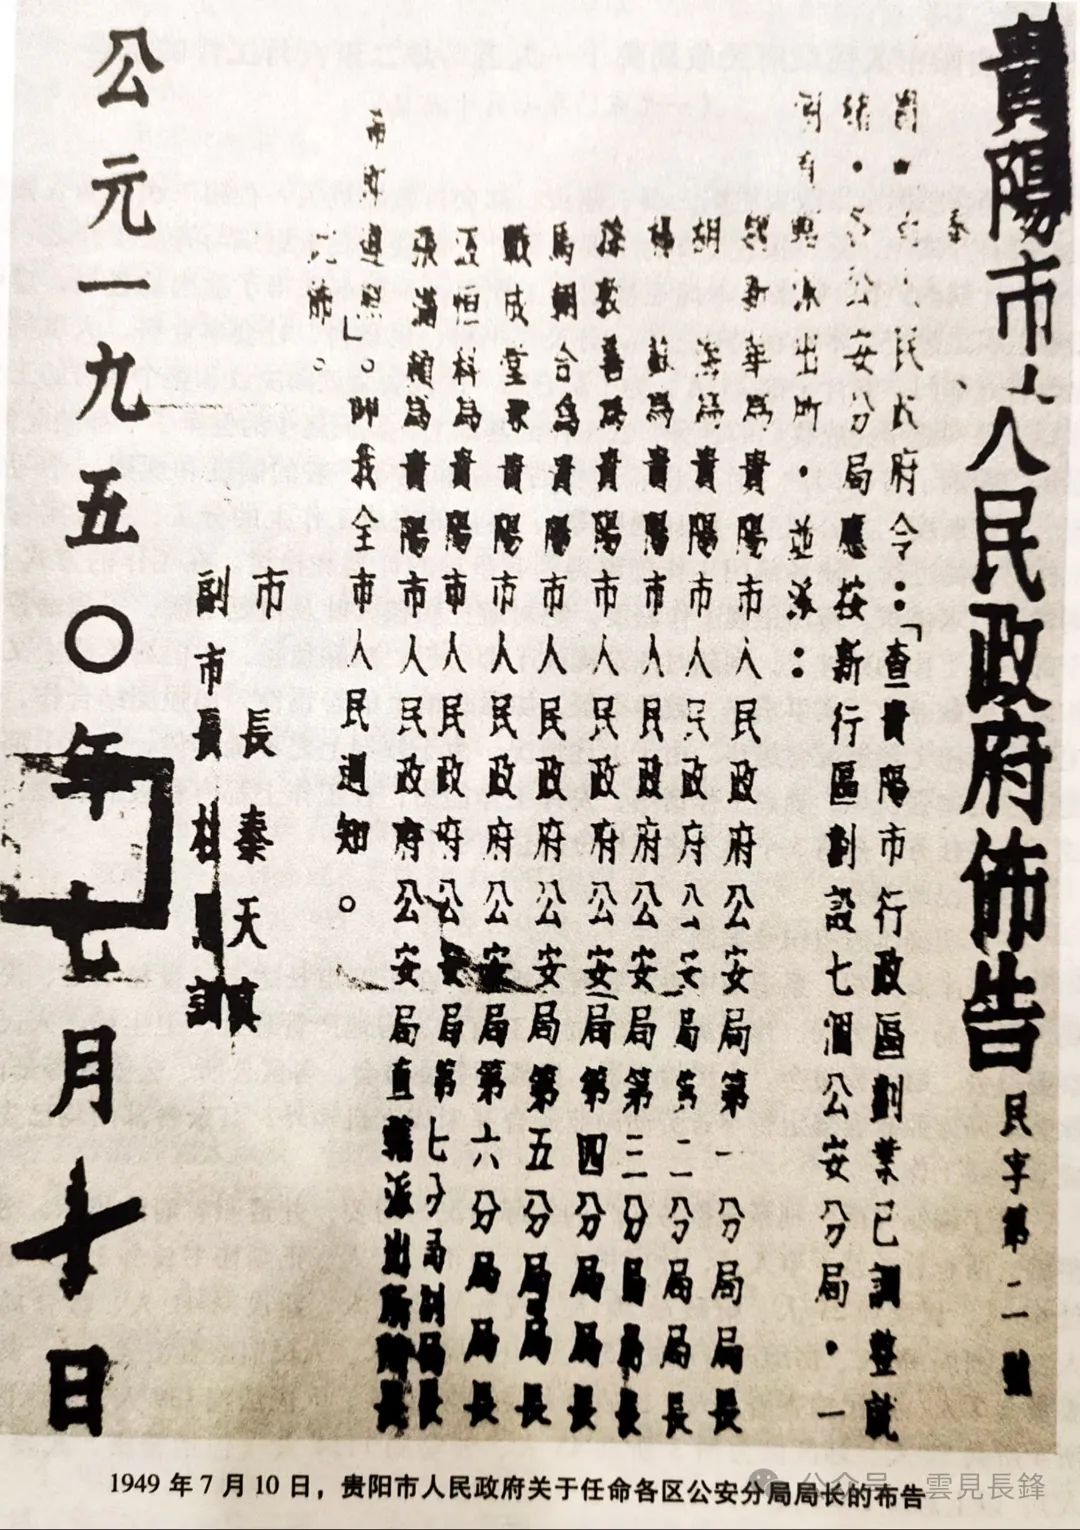 貴陽市人民政府佈告
民字第二號
奉
民政府令：「查貴陽市行政區劃業已調整就
緒・各公安分局應按新行區劃設七個公安分局・一
出所・並派：
華為貴陽市人民政府公安局第一分局局長
胡 為貴陽市人民政府公安局第二分局局長
楊 蘇為貴陽市人民政府公安局第三分局局長
孫敦善為貴陽市人民政府公安局第四分局局長
馬朝合為貴陽市人民政府公安局第五分局局長
戰成堂為貴陽市人民政府公安局第六分局局長
王恒科為貴陽市人民政府公安局第七分局副局長
張滿楨為貴陽市人民政府公安局直轄派出所所長
遵照」。仰我全市人民週知。
此佈。
市 長 秦天真
副市長
公元一九五〇年七月十日
1949 年 7 月 10 日，贵阳市人民政府关于任命各区公安分局局长的布告
公众号 · 雲見長鋒